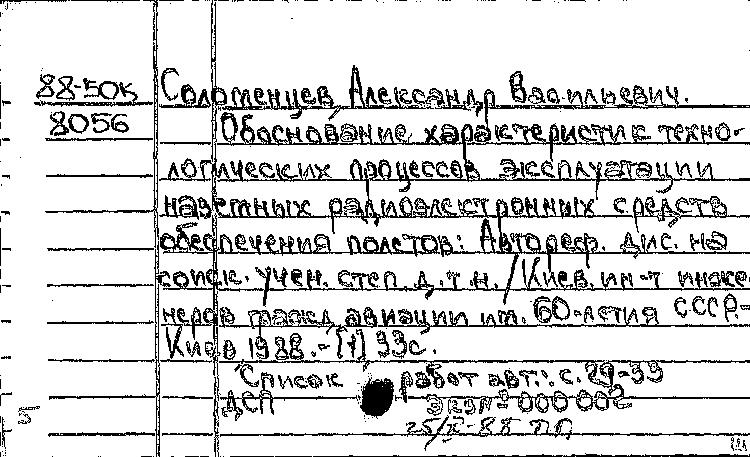 88-50к Соломенцев, Александр Васильевич.
8056 Обоснование характеристик техно-
логических процессов эксплуатации
наземных радиоэлектронных средств
обеспечения полетов: Автореф. дис. на
соиск. учен. степ. д.т.н. / Киев. ин-т инже-
неров гражд. авиации им. 60-летия СССР.-
Киев, 1988.-[1] 33с.
Список работ авт.: с. 29-33
ДСП Экз № 000 002
5 25/II-88